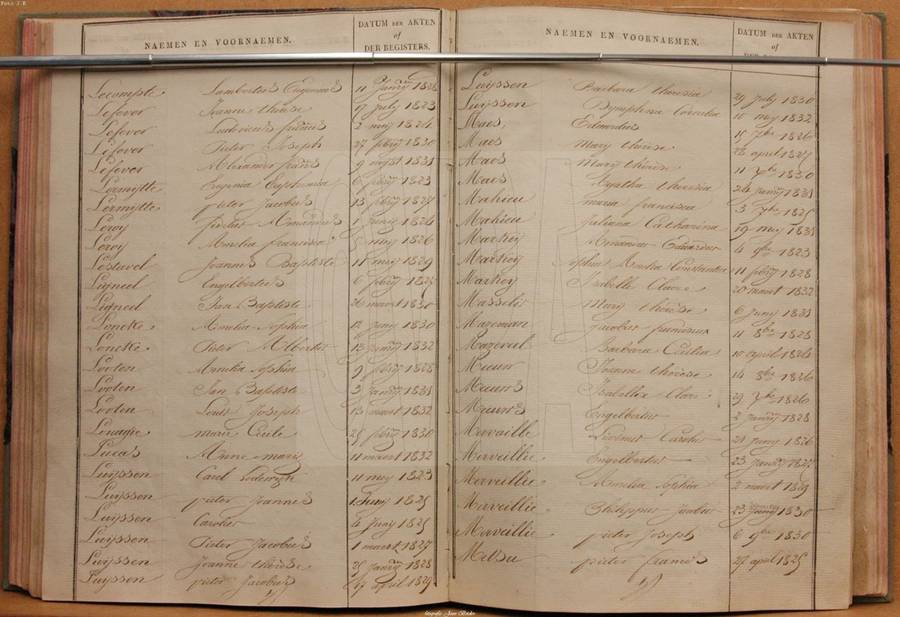 Foto J R
NAEMEN EN VOORNAEMEN. DATUM DER AKTEN
of
DER REGISTERS.
Lecompte Lambertus Eugenius 11 January 1828
Lefever Joanna therese 17 july 1823
Lefever Ludovicus francies 2 may 1824
Lefever Pieter Joseph 27 febry 1830
Lefever Alexander 9 1831
Lermytte Eugenia Euphemia 6 febry 1823
Lermytte pieter Jacobus 15 febry 1825
Leroy Amandus 1 1824
Leroy Amelia francisca may 1826
Lestavel Joannes Baptiste 11 may 1829
Ligneel Engelbertus 6 febry
Ligneel Jan Baptiste 26 maart 1830
Loncke Amelia Sophia 12 juny 1830
Loncke Pieter Albertus 13 1832
Looten Amelia Sophia 9 febry 1828
Looten Jan Baptiste 3 January 1831
Looten Louis Joseph 13 maart 1832
marie Cecile 25 febry 1830
Lucas Anne marie 11 maart 1832
Luyssen Carel Lodewyk 11 may 1823
Luyssen pieter Joannes 1 Juny 1825
Luyssen Carolus 4 Juny 1825
Luyssen Pieter Jacobus 1 maert 1827
Luyssen Joanne therese 25 January 1828
Luyssen pieter Jacobus 17 april 1829
NAEMEN EN VOORNAEMEN. DATUM DER AKTEN
of
Luyssen Barbara theresia 29 july 1830
Luyssen Dymphena Cornelia 16 may 1832
Maes Edmondus 15 7bre 1826
Maes Mary therese 28 april 1827
Maes Mary therese 11 7bre 1830
Maes Agatha theresia 24 January 1831
Mahieu maria francisca 3 7bre 1825
Mahieu Juliana Catharina 19 may 1831
Markey Amandus Eduardus 4 9bre 1823
Markey Sophie Amelia Constantia 11 febry 1828
Markey Isabelle Clara 20 maart 1832
Masselis Mary therese 6 Juny 1831
Mazeman Jacobus franciscus 11 8bre 1828
Mazereel Barbara Cecilia 10 april 1824
Meeun Joanne therese 14 8bre 1826
Meeuns Isabelle Clara 29 7bre 1826
Meeuns Engelbertus 2 January 1828
Mervaille Carolus 21 juny 1826
Merveillie Engelbertus 23 January 1827
Merveillie Amelia Sophia 2 maart 1829
Merveillie Philippus Jacobus 23 Juny 1830
Merveillie pieter Joseph 6 9bre 1830
Metsu pieter francies 27 april 1825